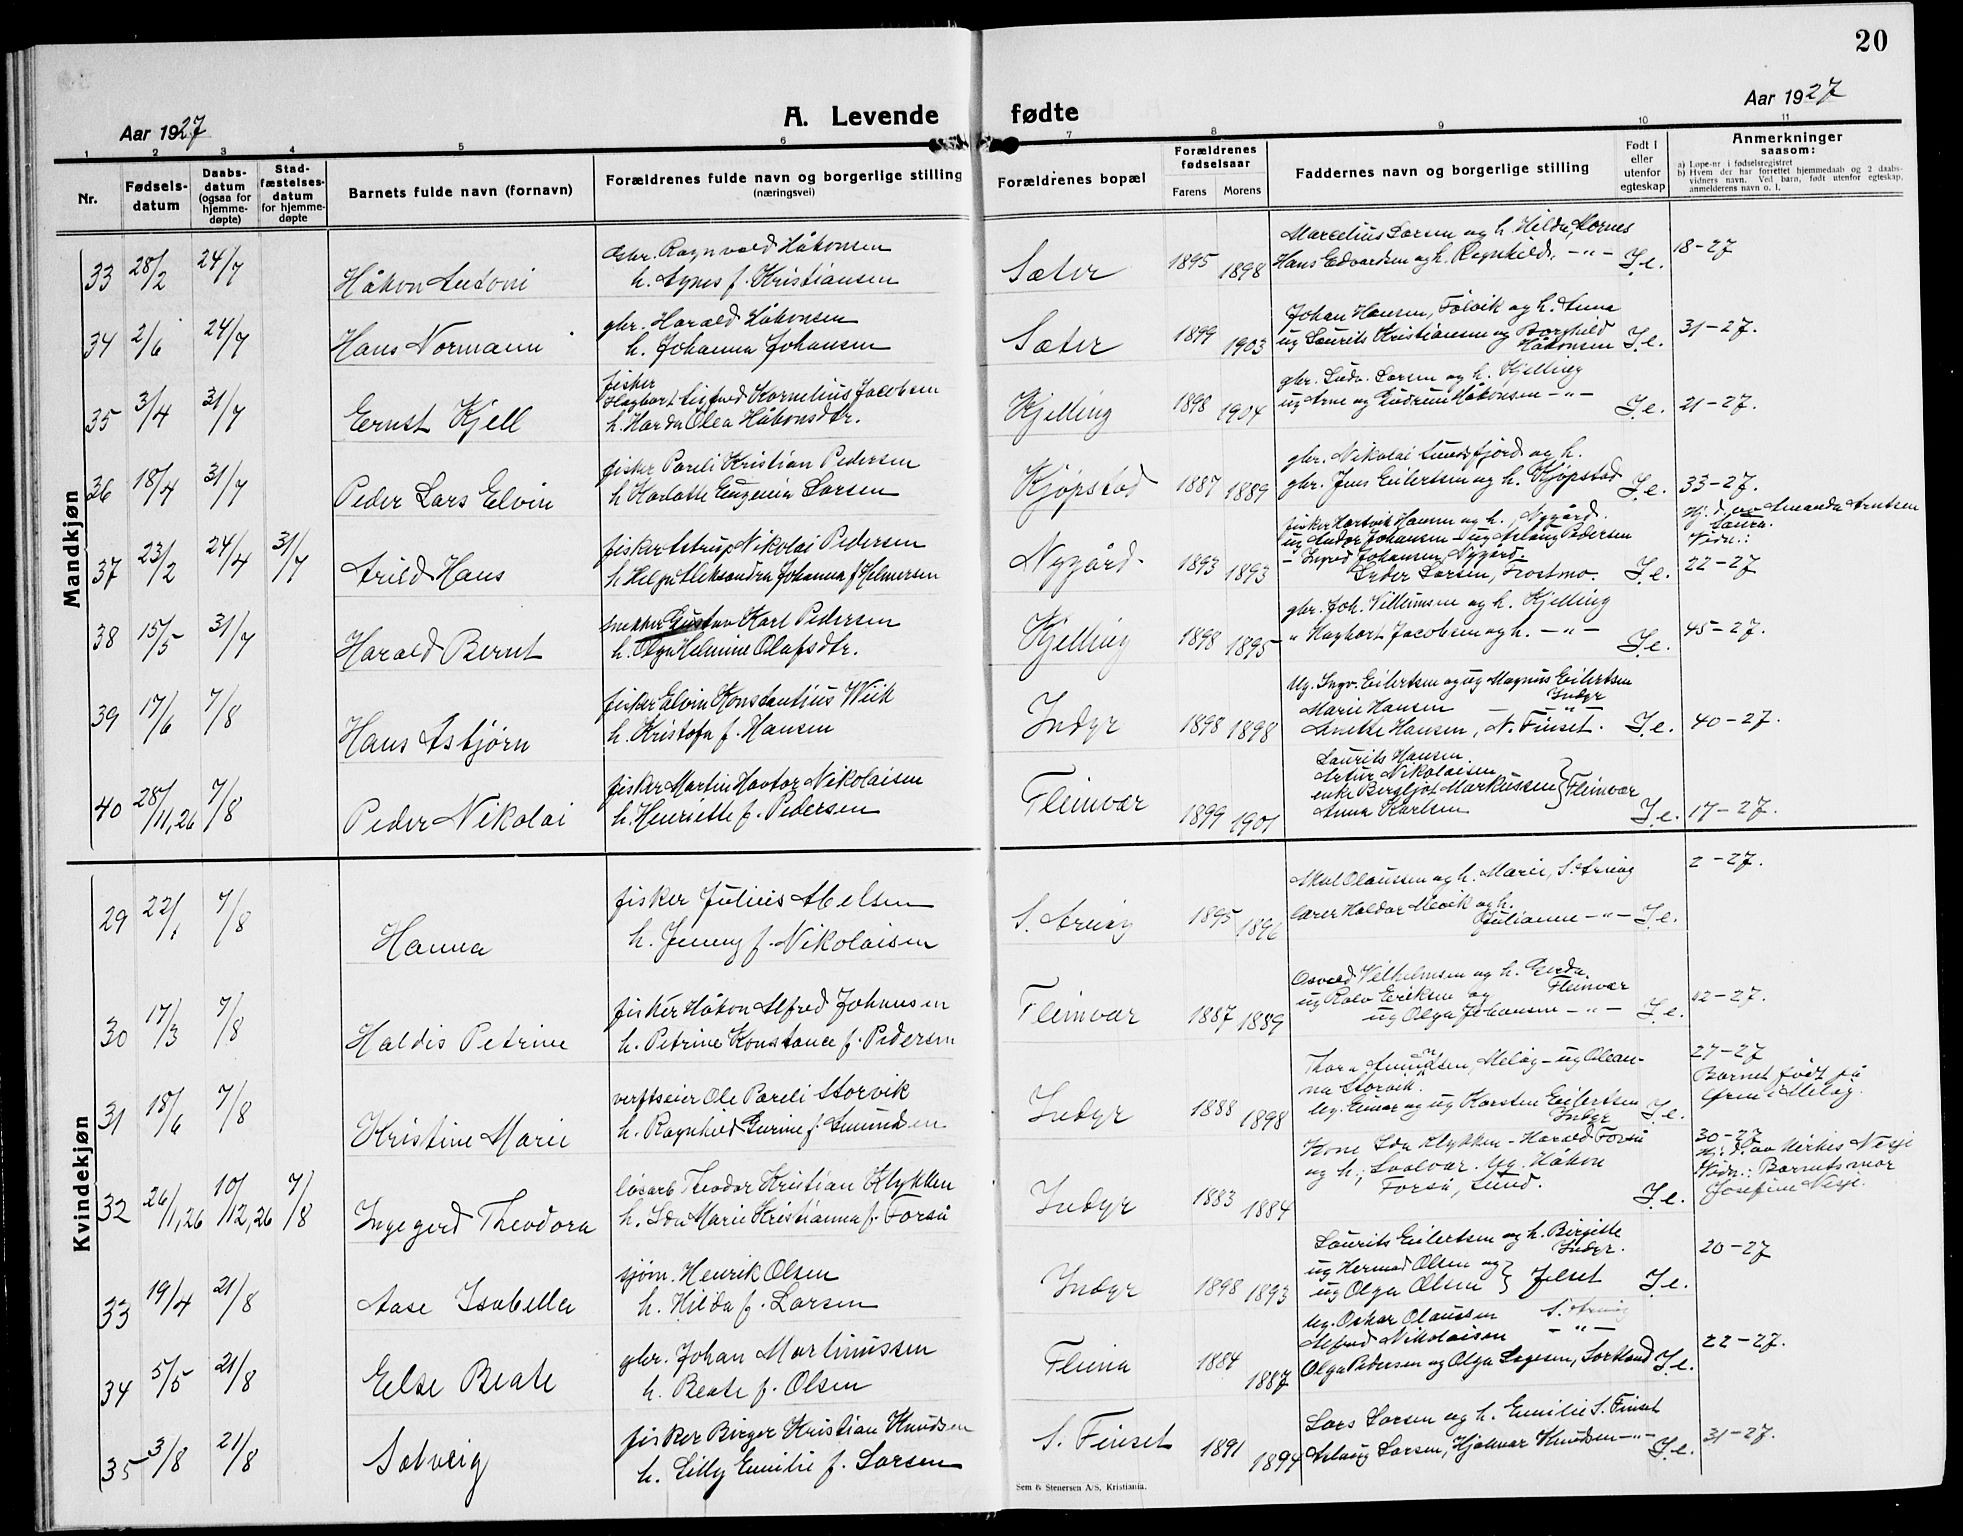 20
Aar 1927
A. Levende fødte
Aar 1927
1 2 3 4 5 6 7 8 9 10 11
Nr.
Fødsels-
datum
Daabs-
datum
(ogsaa for
hjemme-
døpte)
Stad-
fæstelses-
datum
for hjemme-
døpte
Barnets fulde navn (fornavn)
Forældrenes fulde navn og borgerlige stilling
(næringsvei)
Forældrenes bopæl
Forældrenes
fødselsaar
Farens Morens
Faddernes navn og borgerlige stilling
Født i
eller
utenfor
egteskap
Anmerkninger
saasom:
a) Løpe-nr. i fødselsregistret
b) Hvem der har forrettet hjemmedaab og 2 daabs-
vidners navn. Ved barn, født utenfor egteskap,
anmelderens navn o. l.
Mandkjøn
33 28/2 24/7 Håkon Antoni
gbr. Ragnvald Håkonsen
h. Agnes f. Kristiansen
Sæter 1895 1898
Marcelius Larsen og h. Hilda,
Hans Edvardsen og h. Ragnhild, -"-
I.e. 18-27
34 2/6 24/7 Hans Normann
gbr. Harald Håkonsen
h. Johanna Johansen
Sæter 1899 1903
Johan Hansen, og h. Anna
ug Laurits Kristiansen og Borghild
Håkonsen
I.e. 31-27.
35 3/4 31/7 Ernst Kjell
fisker
Hagbart Sigfred Kornelius Jacobsen
h. Harda Olea Håkonsdtr.
Kjelling 1898 1904
gbr. Ludv. Larsen og h. Kjelling
ug Arne og Gudrun Håkonsen -"-
I.e. 21-27.
36 18/4 31/7 Peder Lars Elvin
fisker Pareli Kristian Pedersen
h. Karlotte Eugenia Larsen
Kjøpstad 1887 1889
gbr. Nikolai og h.
gbr. Jens Eilertsen og h. Kjøpstad
I.e. 33-27.
37 23/2 24/4 31/7 Arild Hans
fisker Astrup Nikolai Pedersen
h. Helga Aleksandra Johanna f. Helmersen
Nygård 1893 1893
fisker Hartvik Hansen og h., Nygård.
ug Andor Johansen - ug Aslaug Pedersen
- Ingrid Johansen, Nygård.
Peder Larsen, Frostmo.
I.e.
Hj.d. av Amanda Arntsen
Vidn.: Laura
22-27
38 15/5 31/7 Harald Bernt
snekker Gustav Karl Pedersen
h. Olga Helmine Olafsdtr.
Kjelling 1898 1895
gbr. Joh. Villumsen og h. Kjelling
" Hagbart Jacobsen og h. -"-
I.e. 45-27.
39 17/6 7/8 Hans Asbjørn
fisker Elvin Konstantius Wiik
h. Kristofa f. Hansen
Indyr 1898 1898
Ug. Ingv. Eilertsen og ug Magnus Eilertsen
Indyr
Marie Hansen -"-
Hansen, N. Finset.
I.e. 40-27.
40 28/11,26 7/8 Peder Nikolai
fisker Martin Havtor Nikolaisen
h. Henriette f. Pedersen
Fleinvær 1899 1901
Laurits Hansen
Artur Nikolaisen
enke Bergljot Markussen } Fleinvær
Anna Karlsen
I.e. 17-27.
Kvindekjøn
29 22/1 7/8 Hanna
fisker Julius Abelsen
h. Jenny f. Nikolaisen
S. Arnøy 1895 1896
Olaussen og h. Marie, S. Arnøy
lærer Haldor Mevik og h.
Julianne -"-
I.e. 2-27.
30 17/3 7/8 Haldis Petrine
fisker Håkon Alfred Johansen
h. Petrine Konstance f. Pedersen
Fleinvær 1887 1889
Osvald Vilhelmsen og h. Gerda,
Fleinvær
ug Rolv Eriksen og
ug Olga Johansen -"-
I.e. 12-27.
31 18/6 7/8 Kristine Marie
verftseier Ole Pareli Storvik
h. Ragnhild Gurine f. Amundsen
Indyr 1888 1898
Thora Amundsen, Meløy - ug Olean-
na Storvik.
Ug. Einar og ug Karsten Eilertsen
Indyr
I.e. 27-27
Barnet født på
Ørnes i Meløy.
32 26/11,26 10/12,26 7/8 Ingegerd Theodora
løsarb Theodor Kristian Klykken
h. Ida Marie Kristianna f. Forså
Indyr 1883 1884
Kone Ida Klykken - Harald Forså
og h., Svolvær. Ug. Håkon
Forså, Sund.
I.e. 30-27
Hj.d. av Mirkis Nesje
Vidn.: Barnets mor
Josefine Nesje.
33 19/4 21/8 Aase Isabella
sjøm. Henrik Olsen
h. Hilda f. Larsen
Indyr 1898 1893
Laurits Eilertsen og h. Birgitte
Indyr.
ug Hermod Olsen og
ug Olga Olsen } Jelset
I.e. 20-27
34 5/5 21/8 Else Beate
gbr. Johan Martinussen
h. Beate f. Olsen
Fleina 1884 1887
Ug. Oskar Olaussen S. Arnøy
Alfred Nikolaisen -"-
Olga Pedersen og Olga, Sortland
I.e. 22-27.
35 3/8 21/8 Solveig
fisker Birger Kristian Knudsen
h. Lilly Emilie f. Larsen
S. Finset 1891 1894
Lars Larsen og h. Emilie S. Finset
Aslaug Larsen, Hjalmar Knudsen -"-
I.e. 31-27.
Sem & Stenersen A/S, Kristiania.